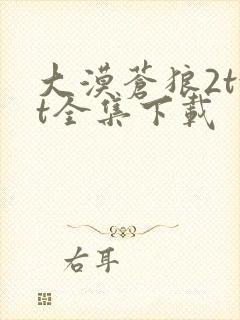 大漠蒼狼2t
t全集下載
右耳